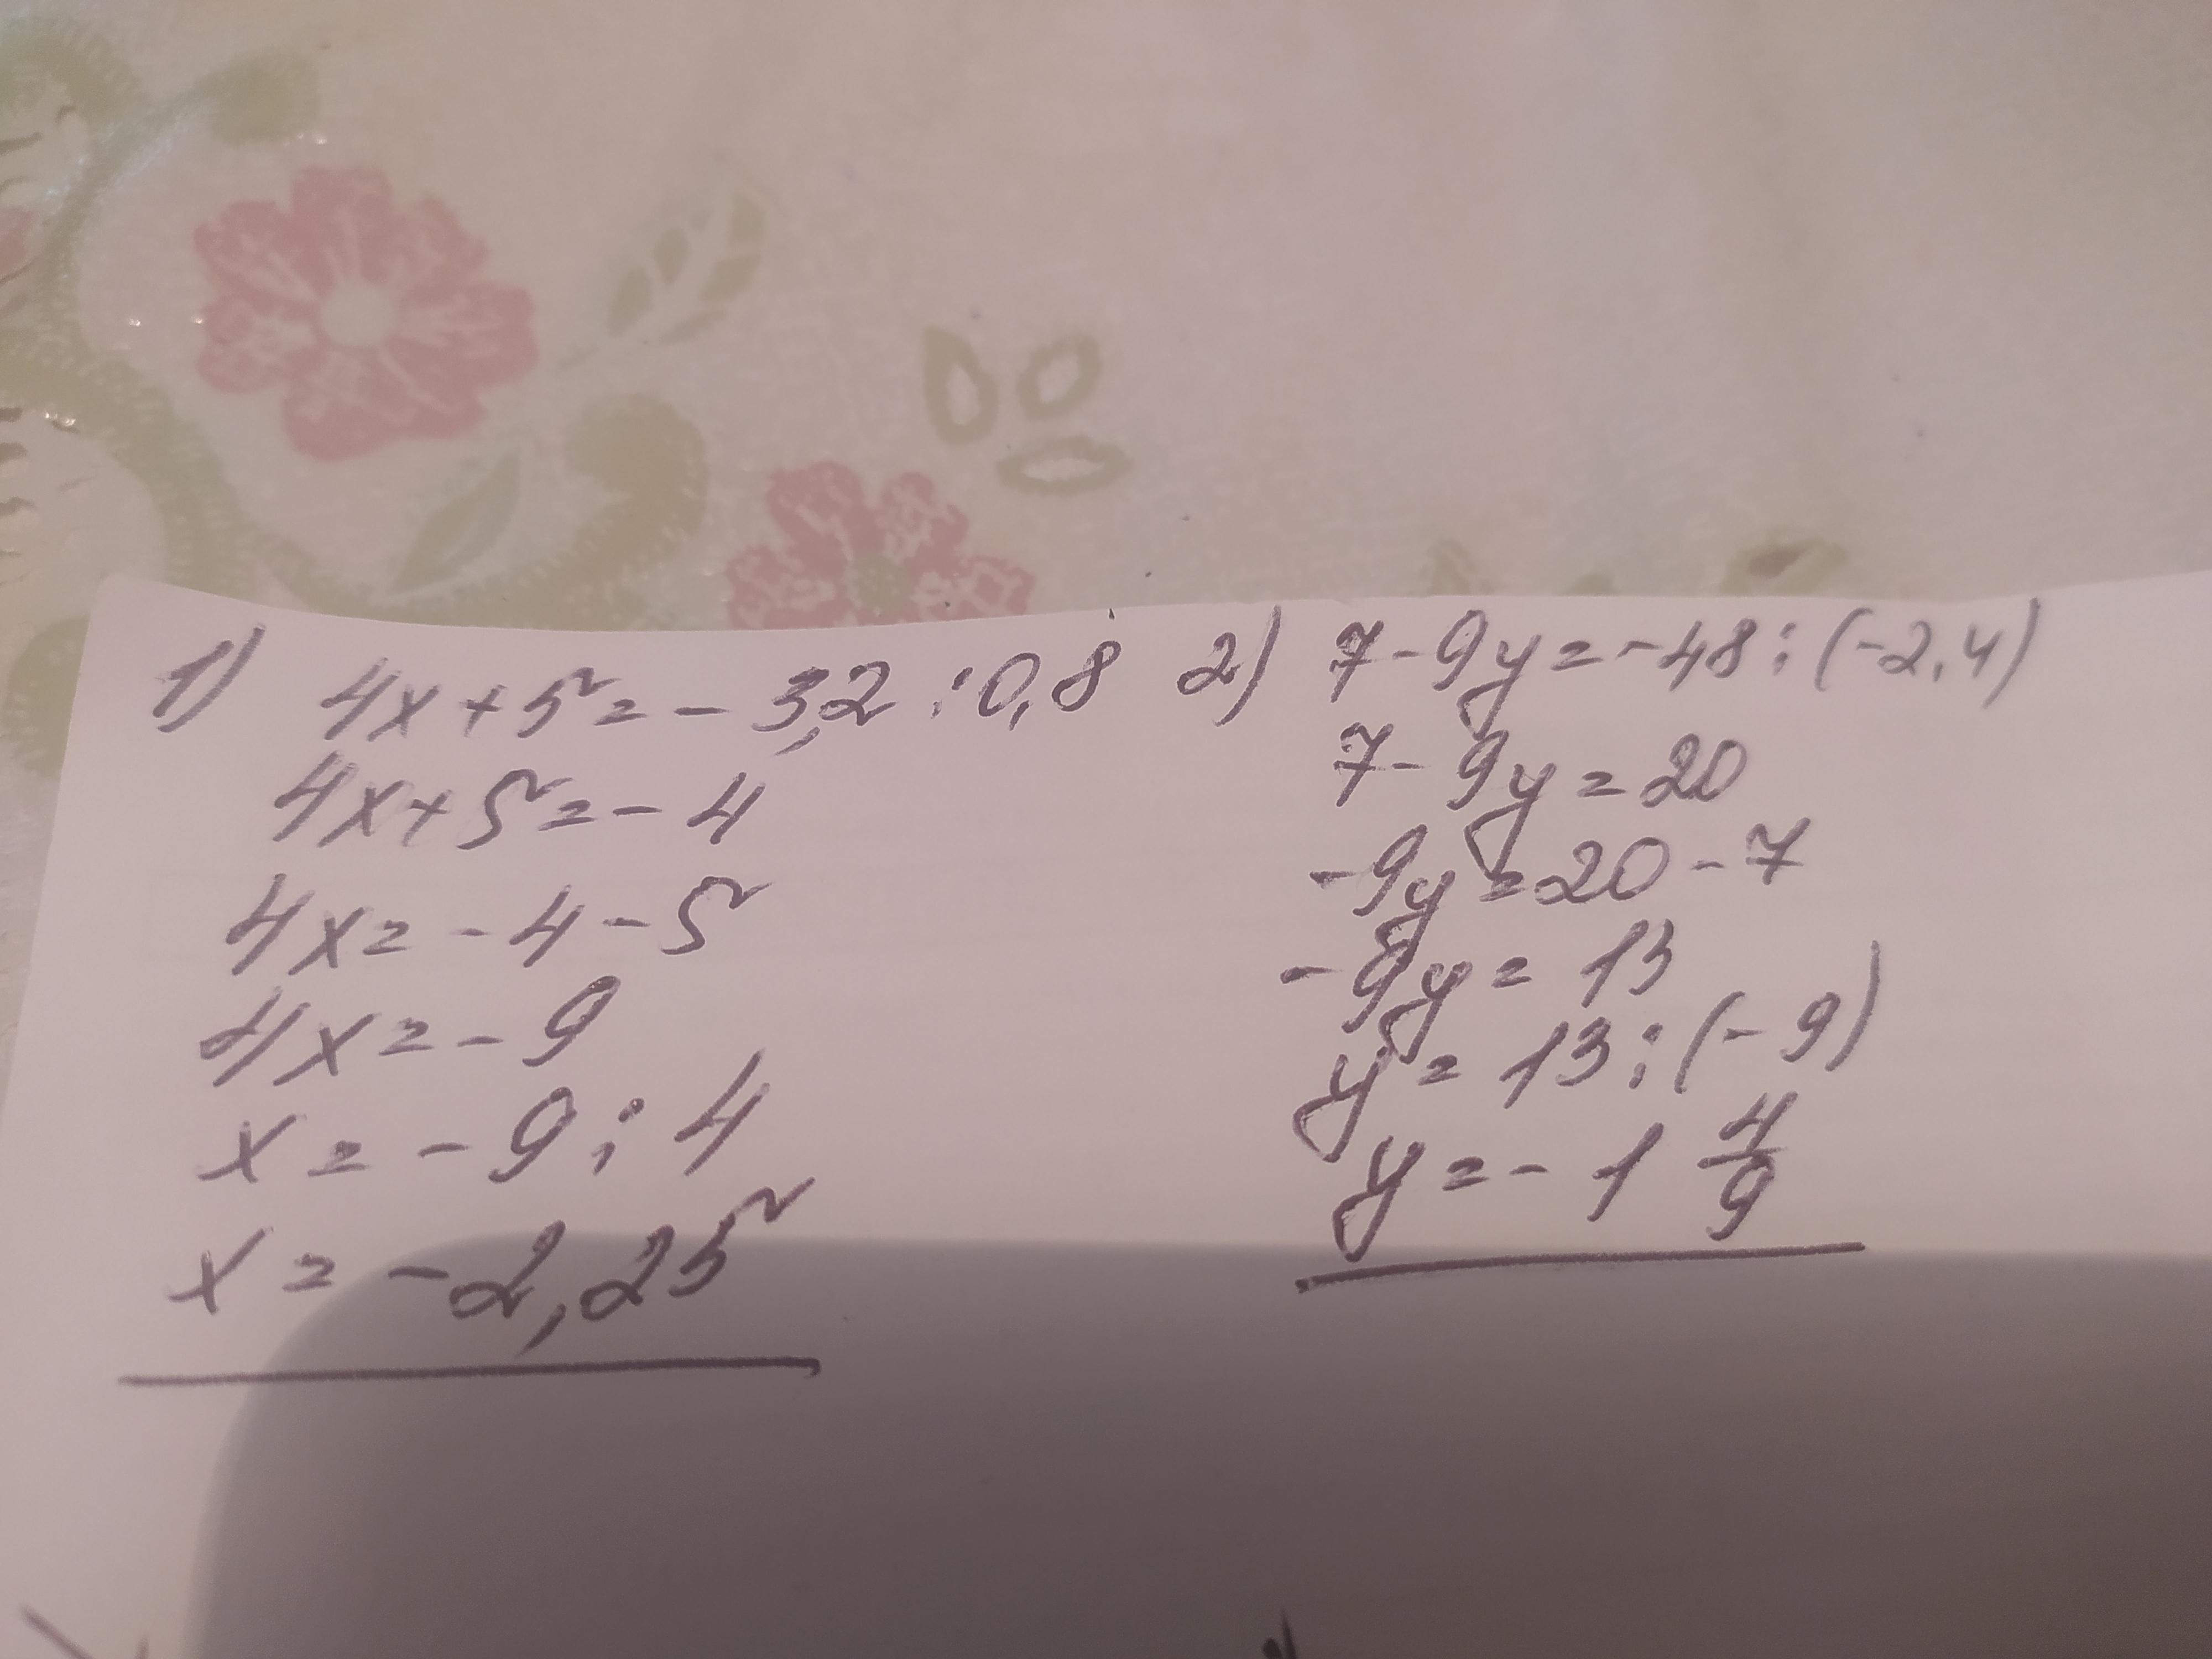 1) 4x+5=-3,2:0,8
4x+5=-4
4x=-4-5
4x=-9
x=-9:4
x=-2,25
2) 7-9y=-48:(-2,4)
7-9y=20
-9y=20-7
-9y=13
y=13:(-9)
y=-1 4/9